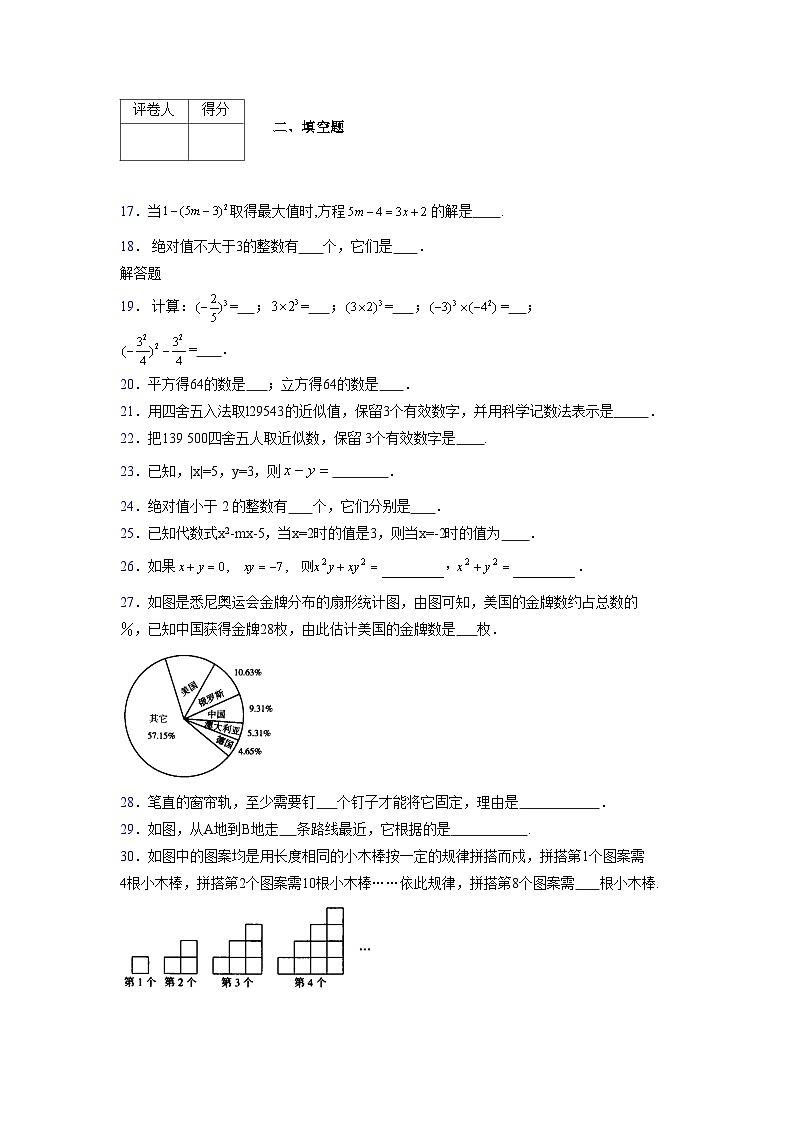 评卷人 得分
二、填空题
17．当1－(5m－3)²取得最大值时,方程5m－4＝3x＋2的解是____.
18． 绝对值不大于3的整数有____个，它们是____．
解答题
19． 计算：(－2/5)³=___；3×2³=____；(3×2)³=____；(－3)³×(－4²)=___；
(－3²/4)²－3²/4=____．
20．平方得64的数是____；立方得64的数是____．
21．用四舍五入法取l29543的近似值，保留3个有效数字，并用科学记数法表示是______．
22．把139 500四舍五人取近似数，保留 3个有效数字是_____.
23．已知，|x|=5，y=3，则x－y=________．
24．绝对值小于 2 的整数有____个，它们分别是____．
25．已知代数式x²-mx-5，当x=2时的值是3，则当x=-2时的值为_____．
26．如果x＋y＝0， xy＝－7， 则x²y＋xy²＝_________,x²＋y²＝_________．
27．如图是悉尼奥运会金牌分布的扇形统计图，由图可知，美国的金牌数约占总数的
％，已知中国获得金牌28枚，由此估计美国的金牌数是____枚．
美国
10.63%
俄罗斯
9.31%
其它
中国
57.15%
澳大利亚
5.31%
德国
4.65%
28．笔直的窗帘轨，至少需要钉____个钉子才能将它固定，理由是_____________．
29．如图，从A地到B地走___条路线最近，它根据的是____________.
30．如图中的图案均是用长度相同的小木棒按一定的规律拼搭而戍，拼搭第1个图案需
4根小木棒，拼搭第2个图案需10根小木棒……依此规律，拼搭第8个图案需____根小木棒.
…
第 1 个 第 2 个 第 3 个 第 4 个